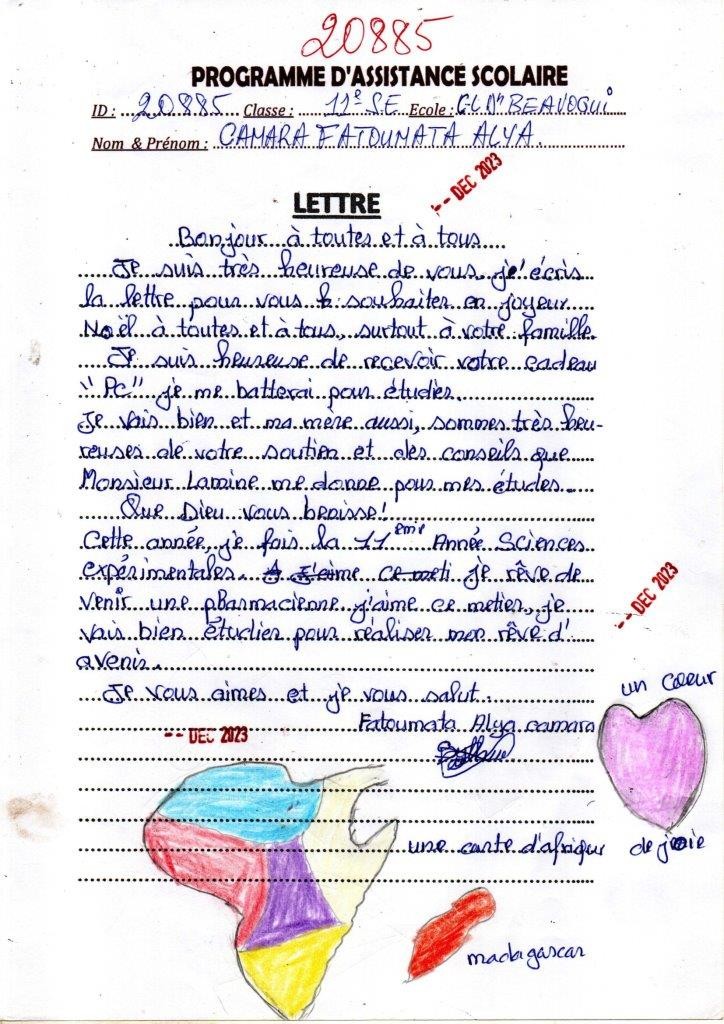 20885
PROGRAMME D'ASSISTANCE SCOLAIRE
ID : 20885 Classe : 11e SE Ecole : G.L Dn BEAVOGUI
Nom & Prénom : CAMARA FATOUMATA ALYA.
-- DEC 2023
LETTRE
Bonjour à toutes et à tous
Je suis très heureuse de vous, je' écris
la lettre pour vous souhaiter en joyeux
Noël à toutes et à tous, surtout à votre famille.
Je suis heureuse de recevoir votre cadeau
"Pc" je me batterai pour étudier.
Je vais bien et ma mère aussi, sommes très heu-
reuses de votre soutien et des conseils que
Monsieur Lamine me donne pour mes études.
Que Dieu vous benisse!
Cette année, je fais la 11eme Année Sciences
expérimentales. J'aime ce meti je rêve de
venir une pharmacienne j'aime ce metier, je
vais bien étudier pour réaliser mon rêve d'
avenir.
-- DEC 2023
Je vous aimes et je vous salut.
un cœur
Fatoumata Alya camara
-- DEC 2023
une carte d'afrique
de joie
madagascar